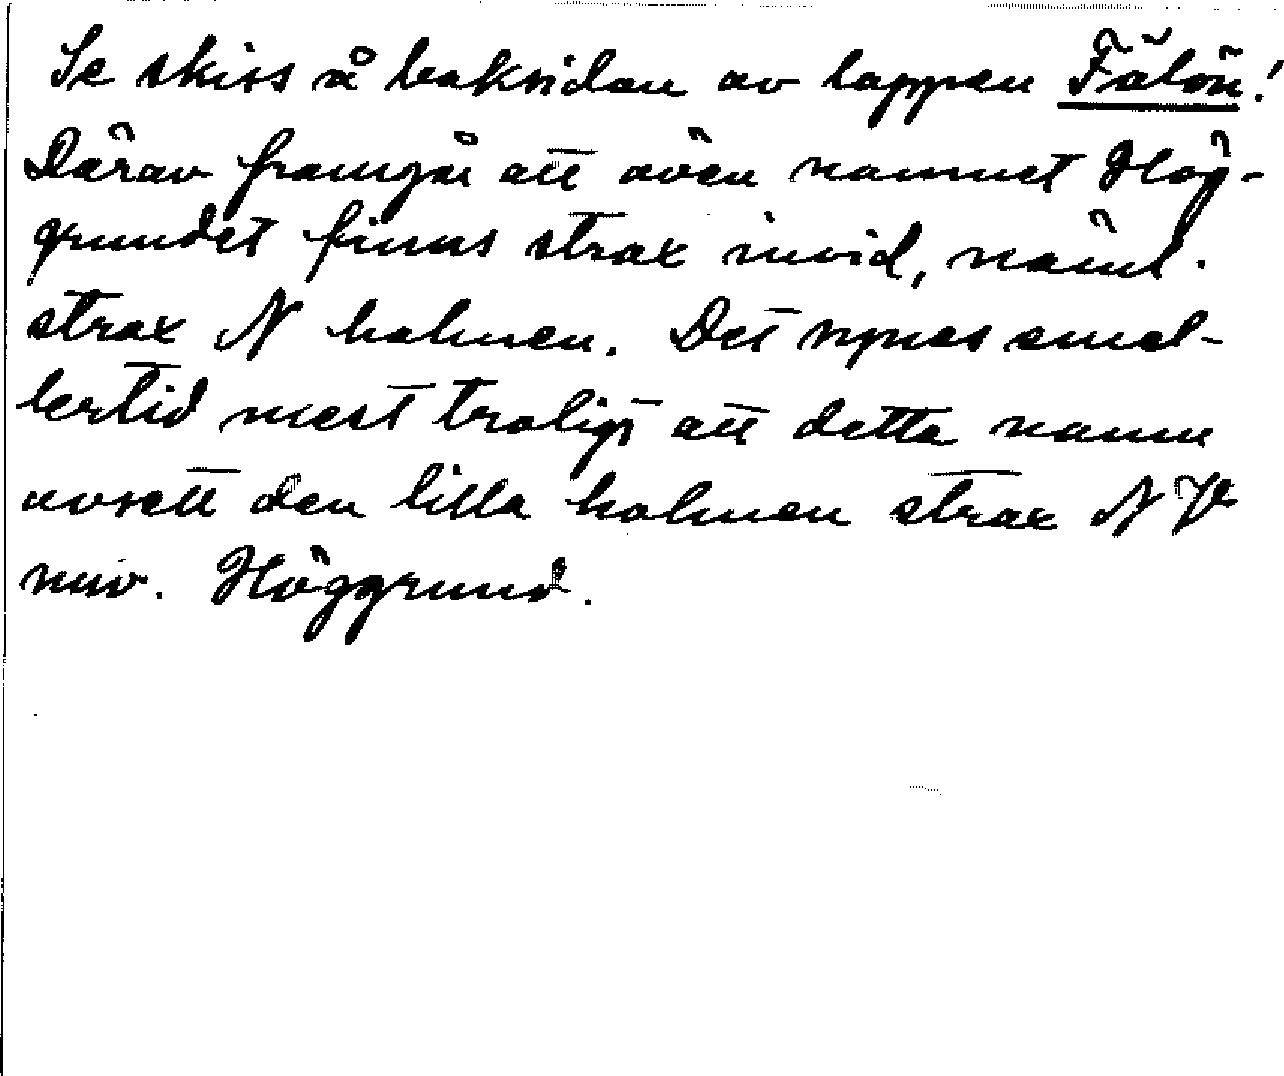 Se skiss å baksidan av lappen Fälön!
Därav framgår att även namnet Hög-
grundet finns strax invid, näml.
strax N holmen. Det synes emel-
lertid mest troligt att detta namn
avsett den lilla holmen strax NV
nuv. Höggrund.